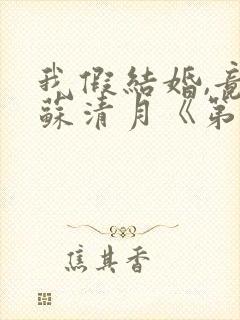 我假結婚,竟
蘇清月《第
焦其香